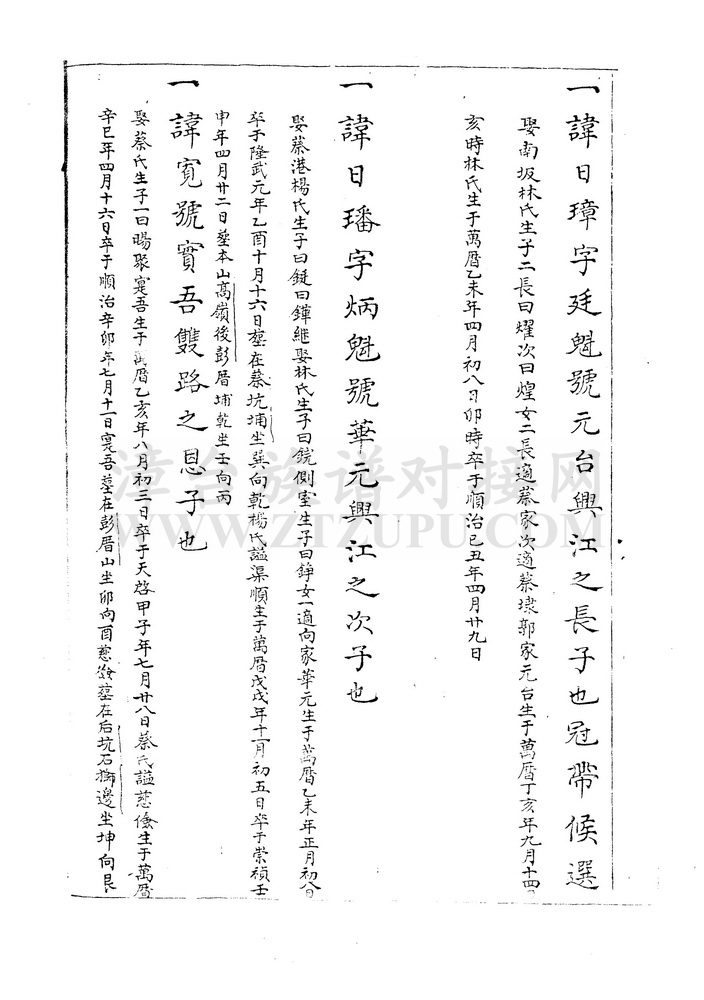 一諱日璋字廷魁號元台興江之長子也冠帶候選
娶南坂林氏生子二長曰燿次曰煌女二長適蔡家次適蔡埭郭家元台生于萬曆丁亥年九月十四
亥時林氏生于萬曆乙未年四月初八日卯時卒于順治己丑年四月廿九日
一諱日璠字炳魁號華元興江之次子也
娶蔡港楊氏生子曰鋌曰鏵繼娶林氏生子曰鋎側室生子曰錚女一適向家華元生于萬曆乙未年正月初八日
卒于隆武元年乙酉十月十六日塟在蔡坑埔坐巽向乾楊氏謚渠順生于萬曆戊戌年十一月初五日卒于崇禎壬
申年四月廿二日塟本山高嶺後彭厝埔乾坐壬向丙
一諱寬號實吾雙路之恩子也
娶蔡氏生子一曰暘聚寔吾生于萬曆乙亥年八月初三日卒于天啓甲子年七月廿八日蔡氏謚慈倹生于萬曆
辛巳年四月十六日卒于順治辛卯年七月十一日寔吾塟在彭厝山坐卯向酉慈儉塟在后坑石獅邊坐坤向艮
漳台族谱对接网
WWW.ZTZUPU.COM